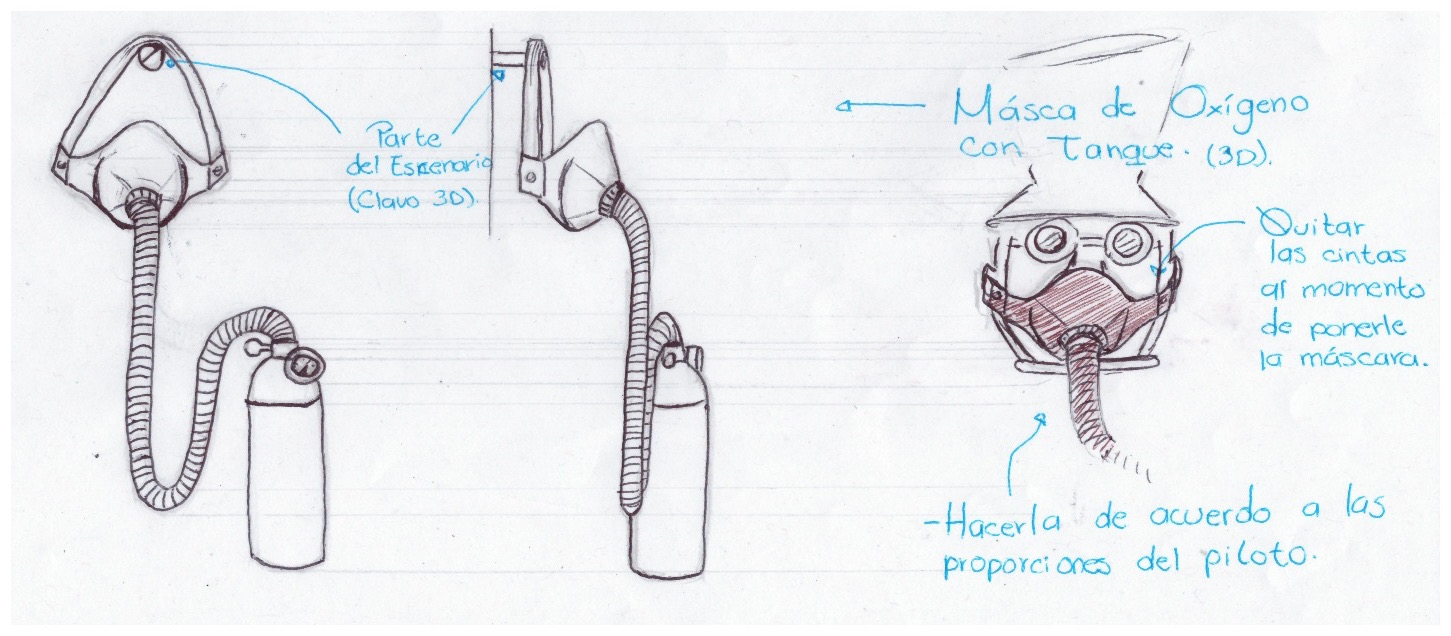 Parte
del Escenario
(Clavo 3D).
Másca de Oxígeno
con Tanque. (3D).
Quitar
las cintas
al momento
de ponerle
la máscara.
-Hacerla de acuerdo a las
proporciones del piloto.